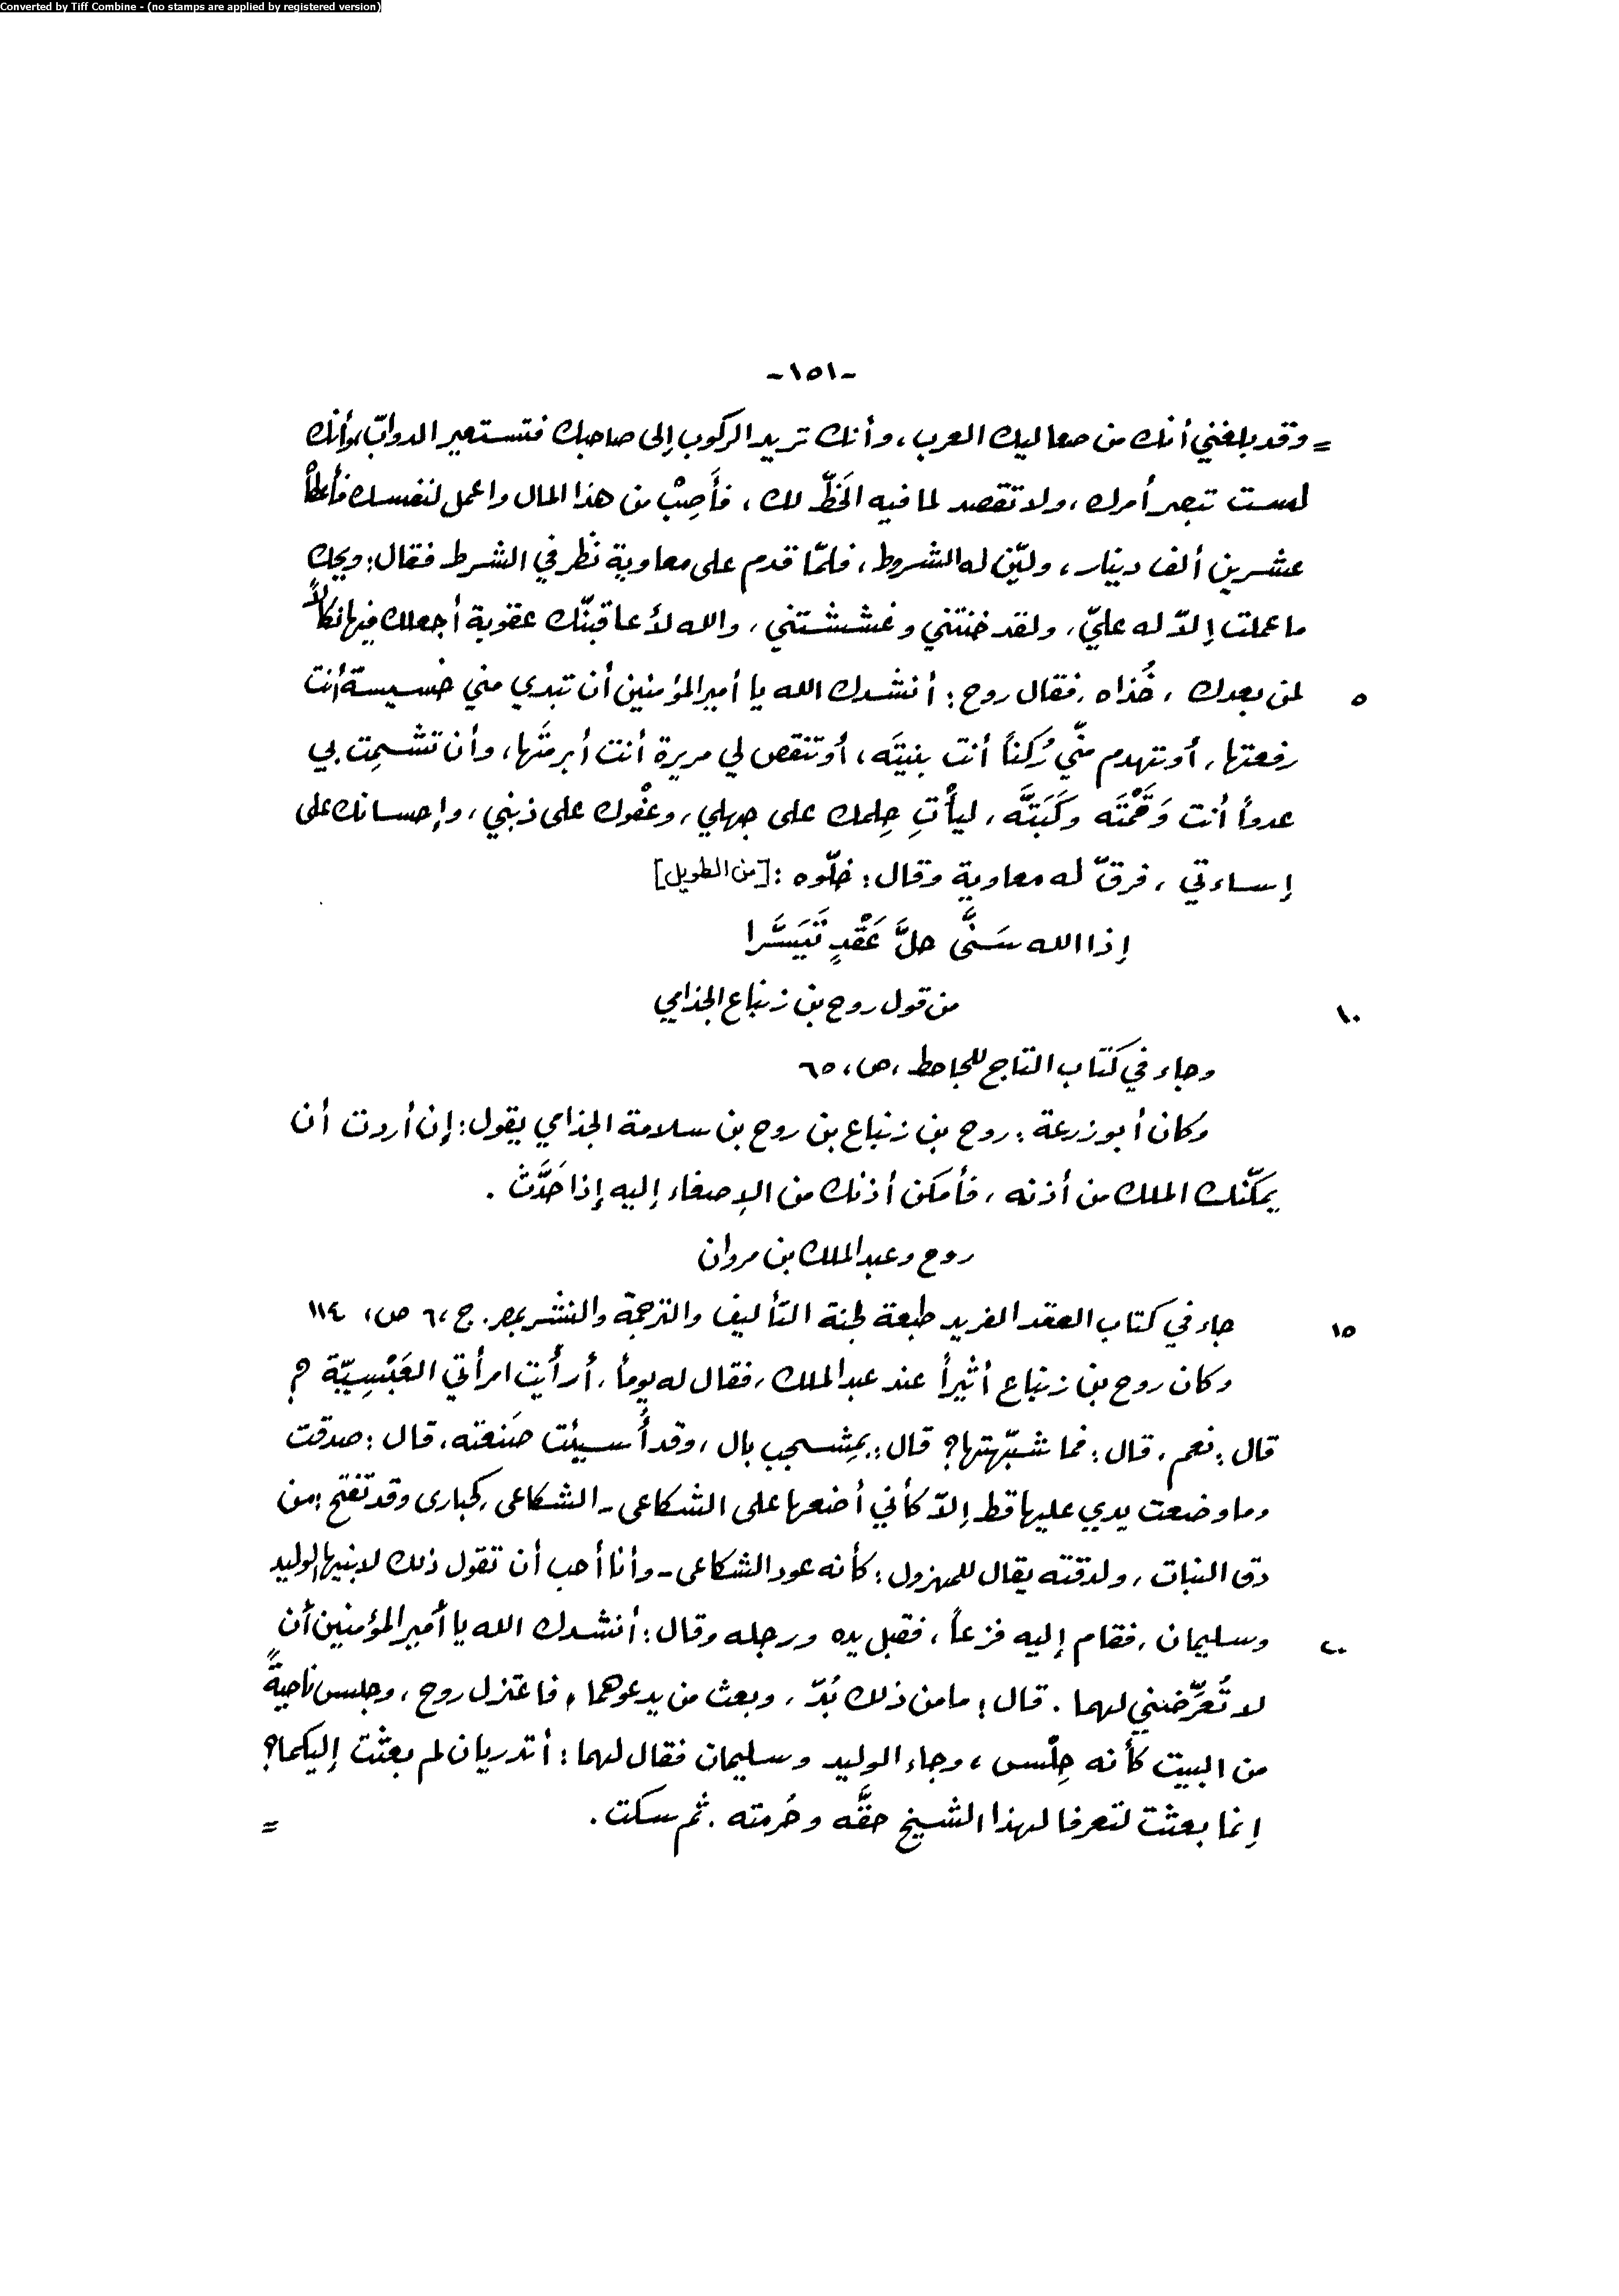 Converted by Tiff Combine - (no stamps are applied by registered version)
-١٥١-
= وقد بلغني أنك من صعاليك العرب، وأنك تريد الركوب إلى صاحبك فتستعير الدوابّ، وأنك
لست تبصر أمرك، ولا تقصد لما فيه الحَظّ لك، فأَصِبْ من هذا المال واعمل لنفسك فأعطاه
عشرين ألف دينار، وليّن له الشروط، فلمّا قدم على معاوية نظر في الشرط فقال: ويحك
ما عملت إلاّ له عليّ، ولقد خنتني وغششتني، والله لأعاقبنّك عقوبة أجعلك فيها نكالاً
٥ لمن بعدك، خُذاه. فقال روح: أنشدك الله يا أمير المؤمنين أن تبدي مني خسيسةً أنت
رفعتها، أو تهدم منّي رُكناً أنت بنيتَه، أو تنقص لي مريرة أنت أبرمتَها، وأن تشمِت بي
عدواً أنت وَقَمْتَه وكَبَتَّه، ليأْتِ حِلمك على جهلي، وعفْوك على ذنبي، وإحسانك على
إساءتي، فرقّ له معاوية وقال: خلّوه: [من الطويل]
إذا الله سَنَّى حلَّ عَقْدٍ تَيَسَّرا
١٠ من قول روح بن زنباع الجذامي
وجاء في كتاب التاج للجاحظ، ص، ٦٥
وكان أبو زرعة: روح بن زنباع بن روح بن سلامة الجذامي يقول: إن أردت أن
يمكّنك الملك من أذنه، فأمكن أذنك من الإصغاء إليه إذا حَدَّث.
روح وعبد الملك بن مروان
١٥ جاء في كتاب العقد الفريد طبعة لجنة التأليف والترجمة والنشر بمصر. ج، ٦ ص، ١١٤
وكان روح بن زنباع أثيراً عند عبد الملك، فقال له يوماً، أرأيت امرأتي العَبْسِيّة؟
قال: نعم، قال: فما شبّهتها؟ قال: بمِشجب بال، وقد أُسيئت صَنعته. قال: صدقت
وما وضعت يدي عليها قط إلاّ كأني أضعها على الشكاعى - الشكاعى، كحبارى وقد تفتح: من
دق النبات، ولدقته يقال للمهزول: كأنه عود الشكاعى - وأنا أحب أن تقول ذلك لابنيها الوليد
٢٠ وسليمان، فقام إليه فزعاً، فقبل يده ورجله وقال: أنشدك الله يا أمير المؤمنين أن
لا تُعرِّضني لهما. قال: ما من ذلك بُدّ، وبعث من يدعوهما، فاعتزل روح، وجلس ناحيةً
من البيت كأنه حِلْس، وجاء الوليد وسليمان فقال لهما: أتدريان لم بعثت إليكما؟
إنما بعثت لتعرفا لهذا الشيخ حقَّه وحُرمته. ثم سكت. =